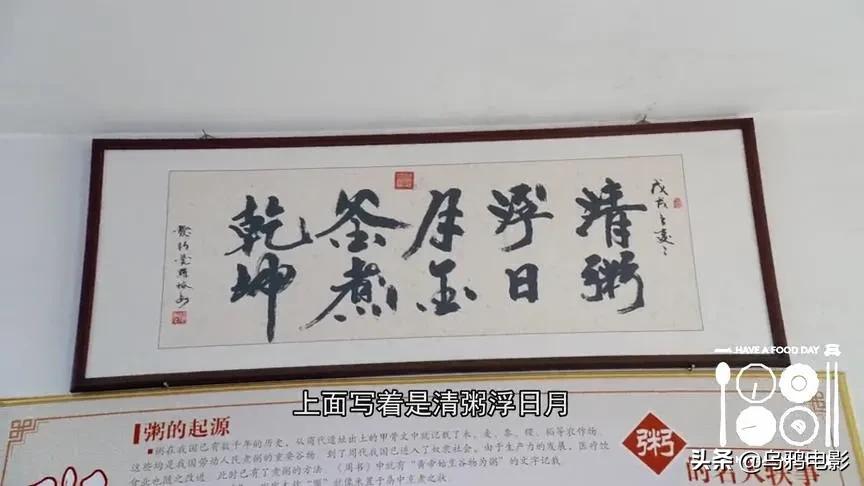 清粥
浮日
月玉
釜煮
乾坤
戊戌
HAVE A FOOD DAY
上面写着是清粥浮日月
粥的起源
粥在我国已有数千年的历史，从商代遗址出土的甲骨文中就记载了禾、麦、黍、稷、稻等农作物，
这些均是我国劳动人民煮粥的重要谷物，到了周代我国已进入了奴隶社会，由于生产力的发展，医疗饮
食业也随之改进，此时已有了煮粥的方法，《周书》中就有“黄帝始烹谷物为粥”的文字记载
粥
的名人轶事
头条@乌鸦电影